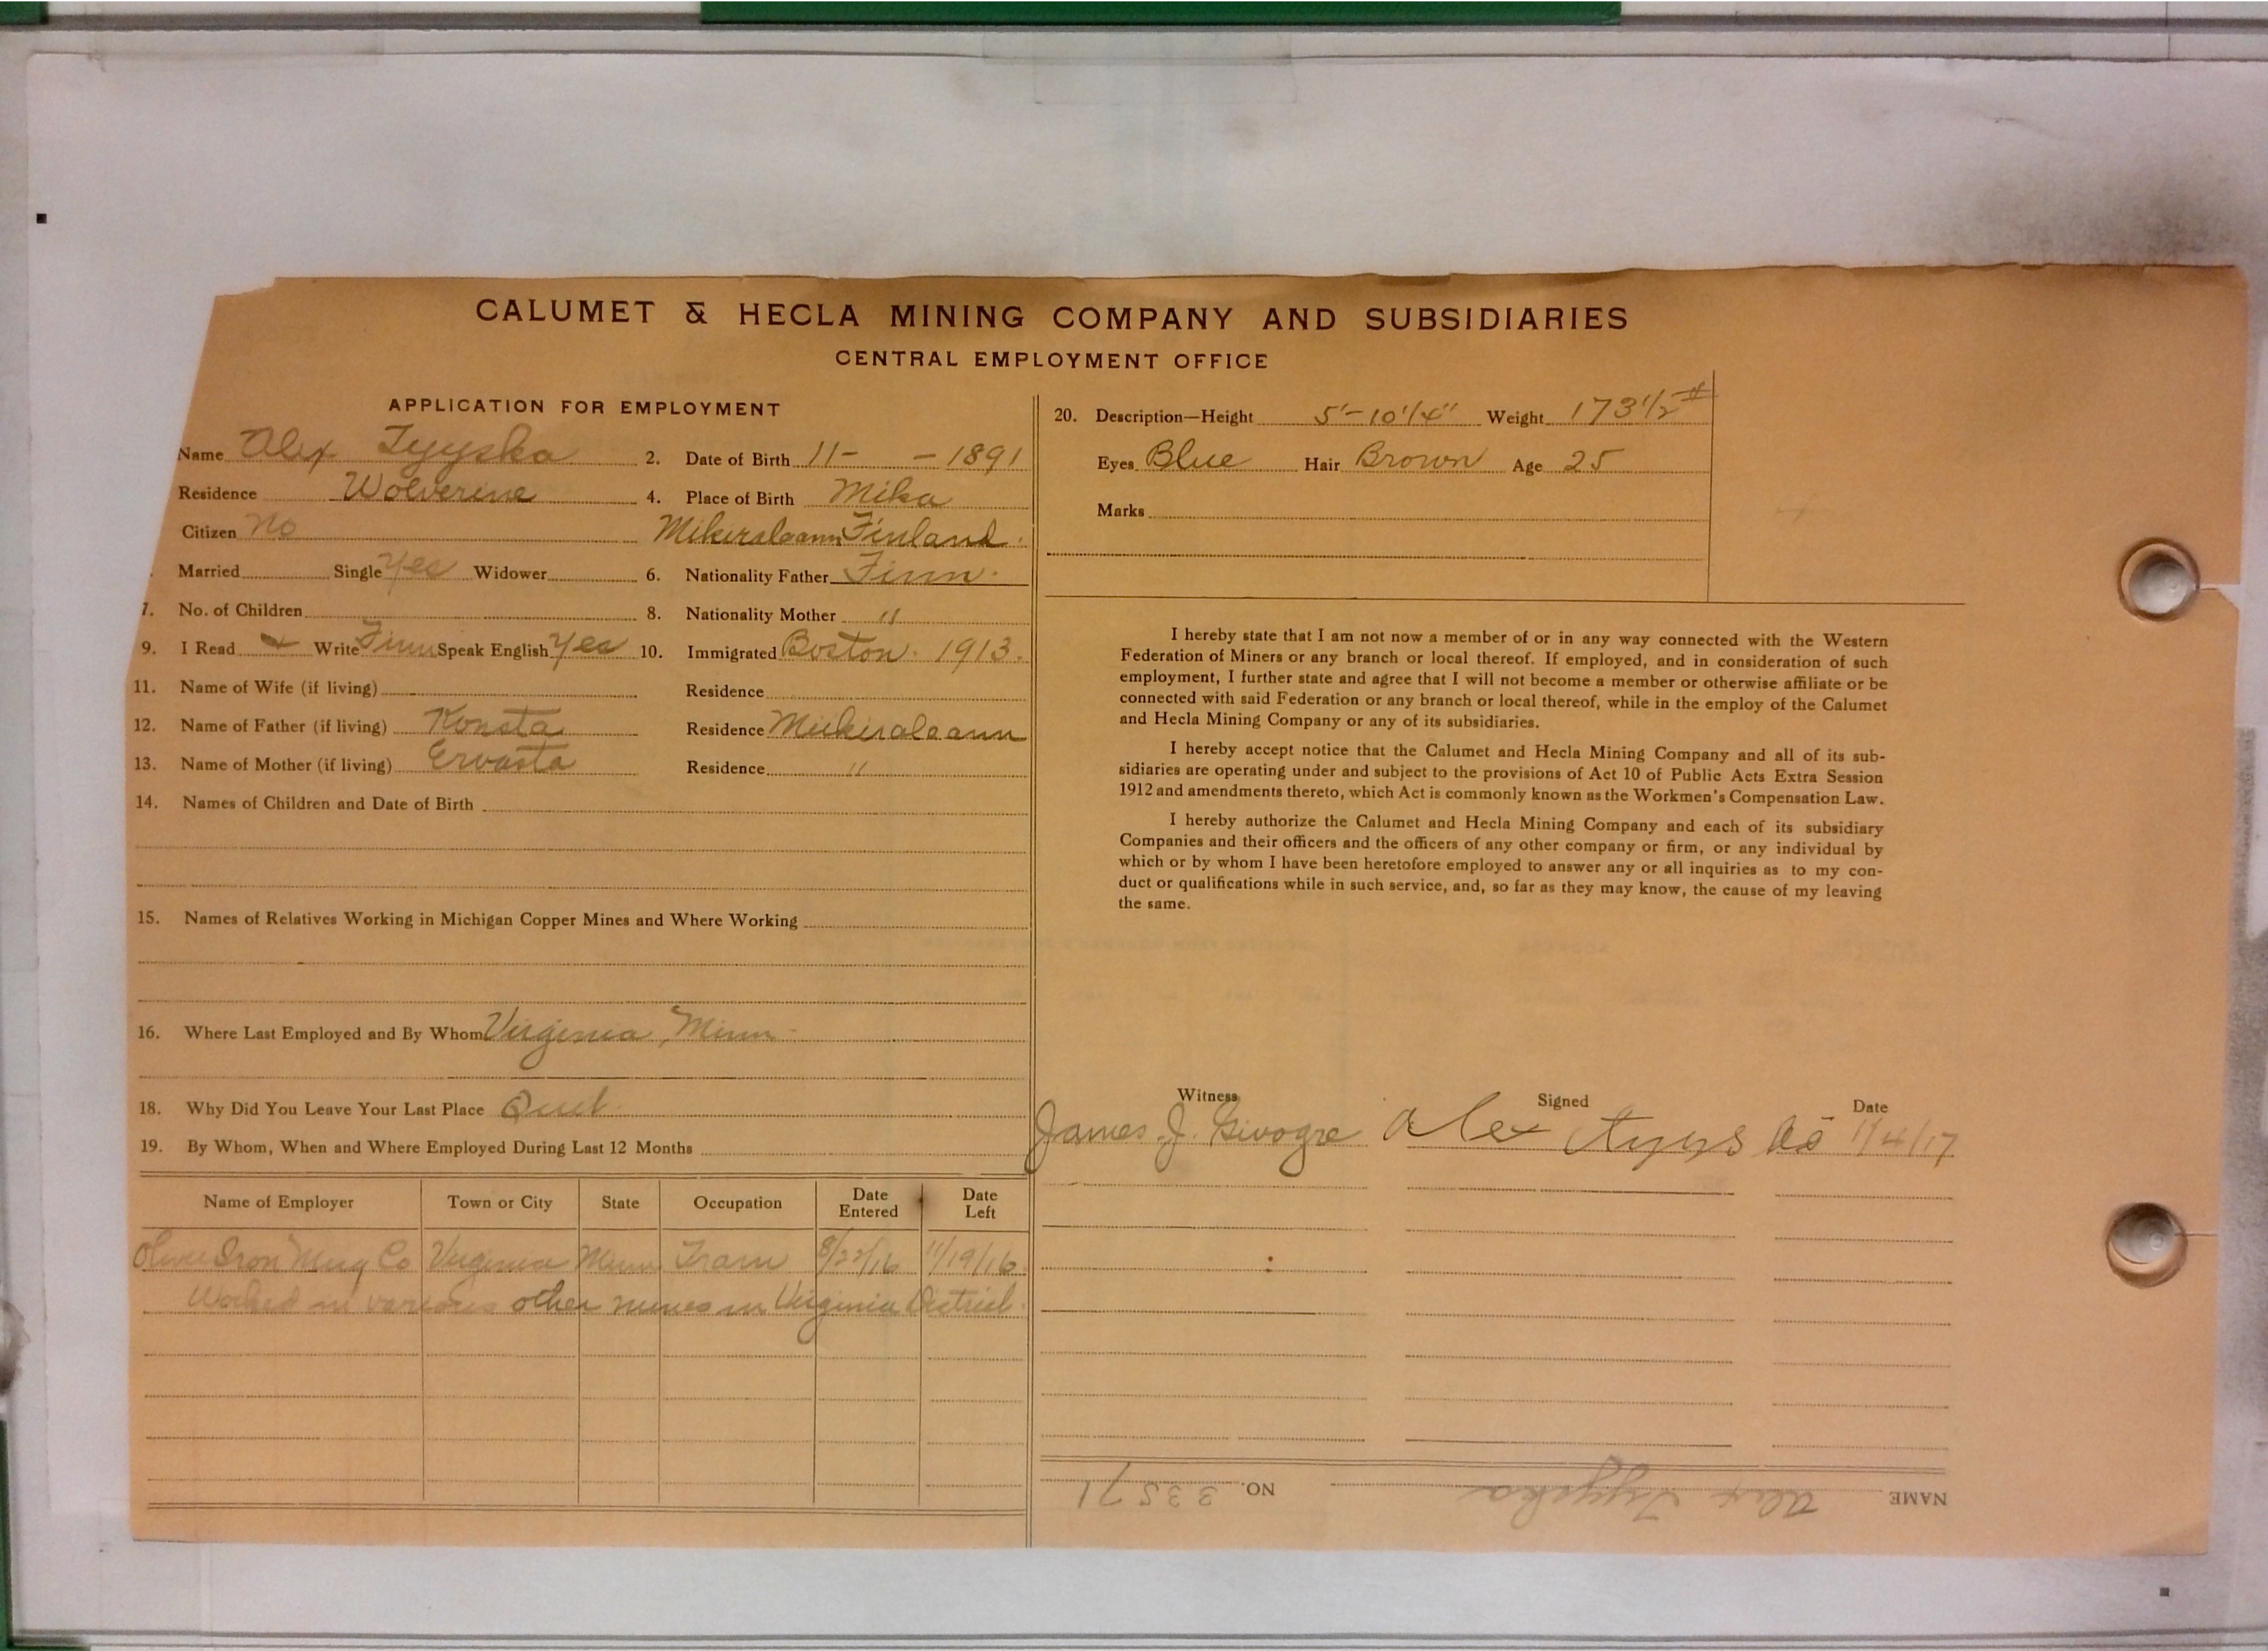 CALUMET & HECLA MINING COMPANY AND SUBSIDIARIES
CENTRAL EMPLOYMENT OFFICE
APPLICATION FOR EMPLOYMENT
Name Alex Tyyska
2. Date of Birth 11- - 1891
Residence Wolverine
4. Place of Birth Mika
Citizen No
Finland.
Married Single Yes Widower
6. Nationality Father Finn.
7. No. of Children
8. Nationality Mother "
9. I Read Write Finn Speak English Yes
10. Immigrated Boston. 1913.
11. Name of Wife (if living)
Residence
12. Name of Father (if living) Konsta
Residence
13. Name of Mother (if living)
Residence "
14. Names of Children and Date of Birth
15. Names of Relatives Working in Michigan Copper Mines and Where Working
16. Where Last Employed and By Whom Virginia, Minn.
18. Why Did You Leave Your Last Place Quit.
19. By Whom, When and Where Employed During Last 12 Months
Name of Employer Town or City State Occupation Date Entered Date Left
Oliver Iron Mng Co Virginia Minn Tram 8/22/16 11/19/16.
Worked in various other mines in Virginia District.
20. Description—Height 5'-10 1/4" Weight 173 1/2 #
Eyes Blue Hair Brown Age 25
Marks
I hereby state that I am not now a member of or in any way connected with the Western
Federation of Miners or any branch or local thereof. If employed, and in consideration of such
employment, I further state and agree that I will not become a member or otherwise affiliate or be
connected with said Federation or any branch or local thereof, while in the employ of the Calumet
and Hecla Mining Company or any of its subsidiaries.
I hereby accept notice that the Calumet and Hecla Mining Company and all of its sub-
sidiaries are operating under and subject to the provisions of Act 10 of Public Acts Extra Session
1912 and amendments thereto, which Act is commonly known as the Workmen's Compensation Law.
I hereby authorize the Calumet and Hecla Mining Company and each of its subsidiary
Companies and their officers and the officers of any other company or firm, or any individual by
which or by whom I have been heretofore employed to answer any or all inquiries as to my con-
duct or qualifications while in such service, and, so far as they may know, the cause of my leaving
the same.
Witness Signed Date
James J. Alex 1/4/17
NAME Alex Tyyska NO. 33571